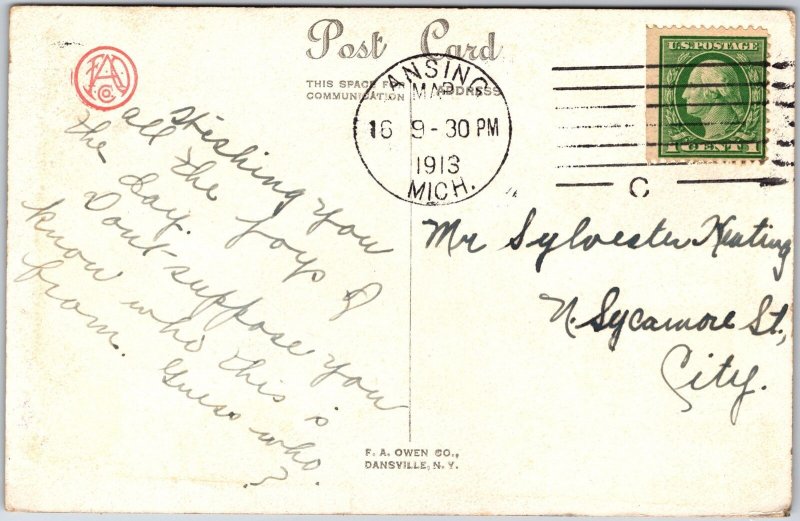 Post Card
THIS SPACE FOR
COMMUNICATION
ADDRESS
FA
O
Co.
LANSING
MAR
16 9-30 PM
1913
MICH.
C
U.S. POSTAGE
1 CENTS 1
Wishing you
all the joys of
the day.
Dont suppose you
know who this is
from. Guess who.
?
Mr Sylvester Keating
N. Sycamore St,
City.
F. A. OWEN CO.,
DANSVILLE, N. Y.